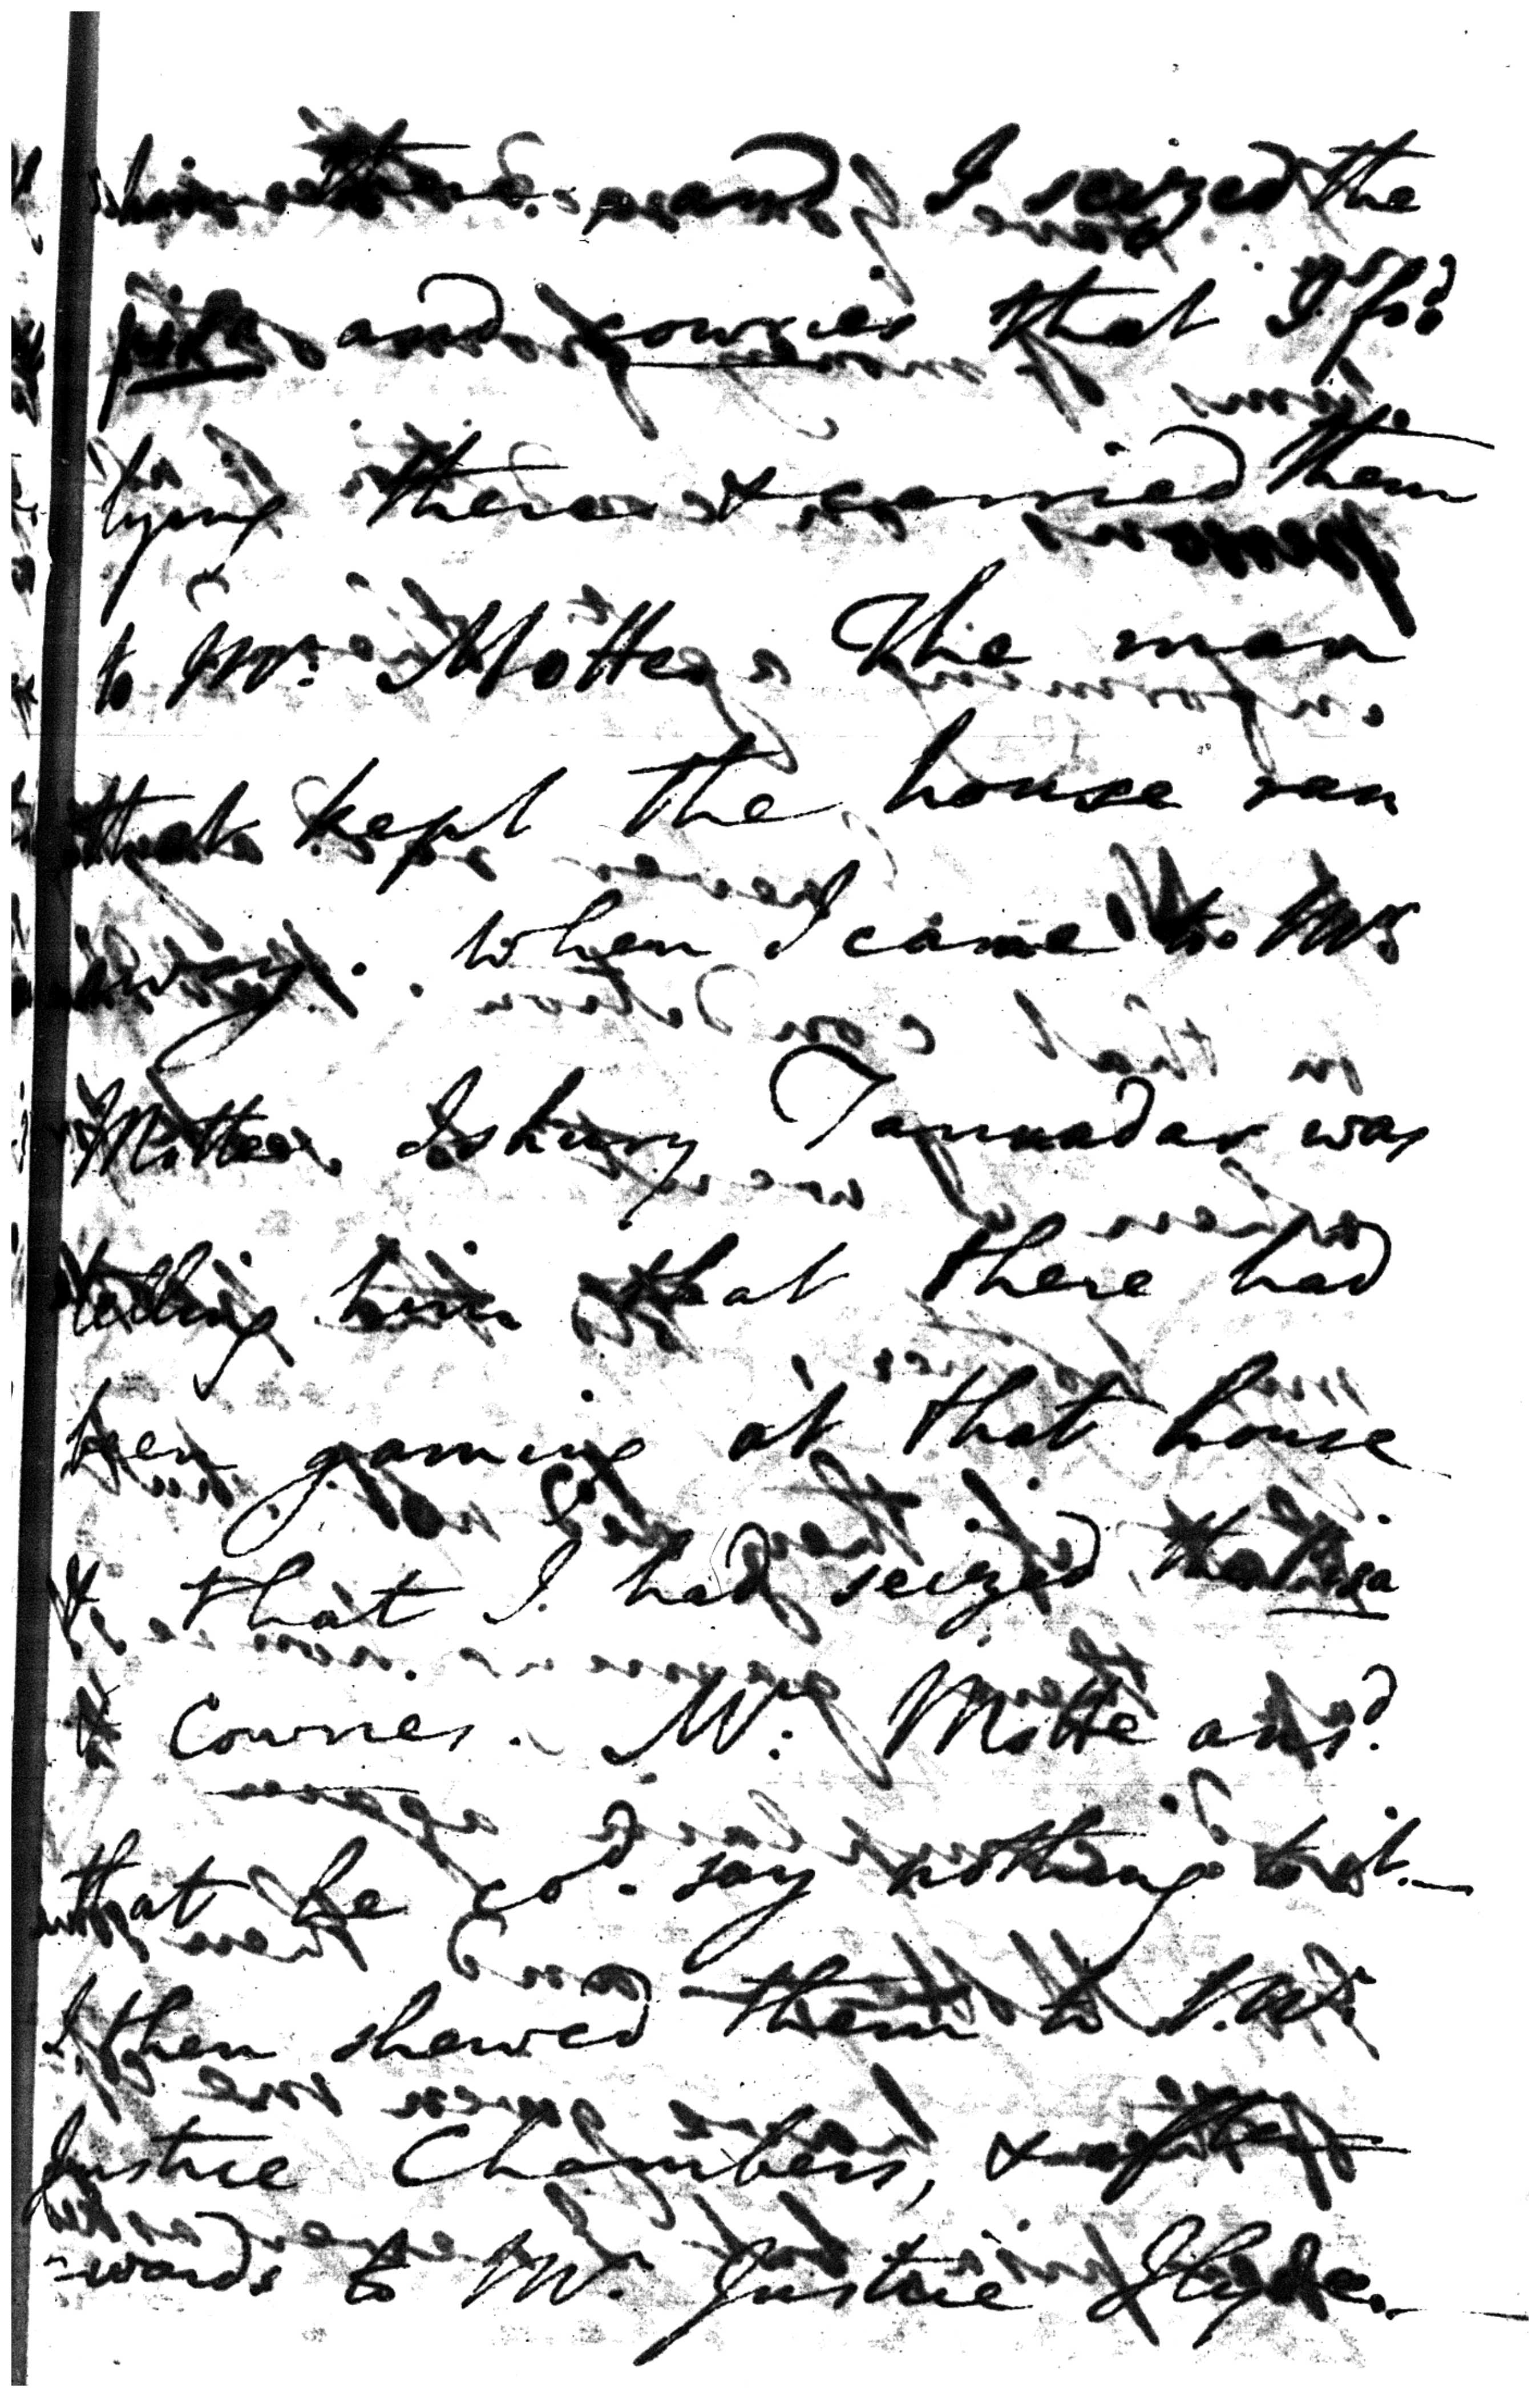 and I seized the
pysa and cowries that I fo.d
lying there & carried them
to Mr. Motte. The man
that kept the house ran
away. When I came to Mr.
Motte, Iskury Tannadar was
telling him that there had
been gaming at that house
& that I had seized the pysa
& Cowries. Mr. Motte ans.d
that he co.d say nothing to it.—
I then shewed them to Mr.
Justice Chambers, & after
=wards to Mr. Justice Hyde.—